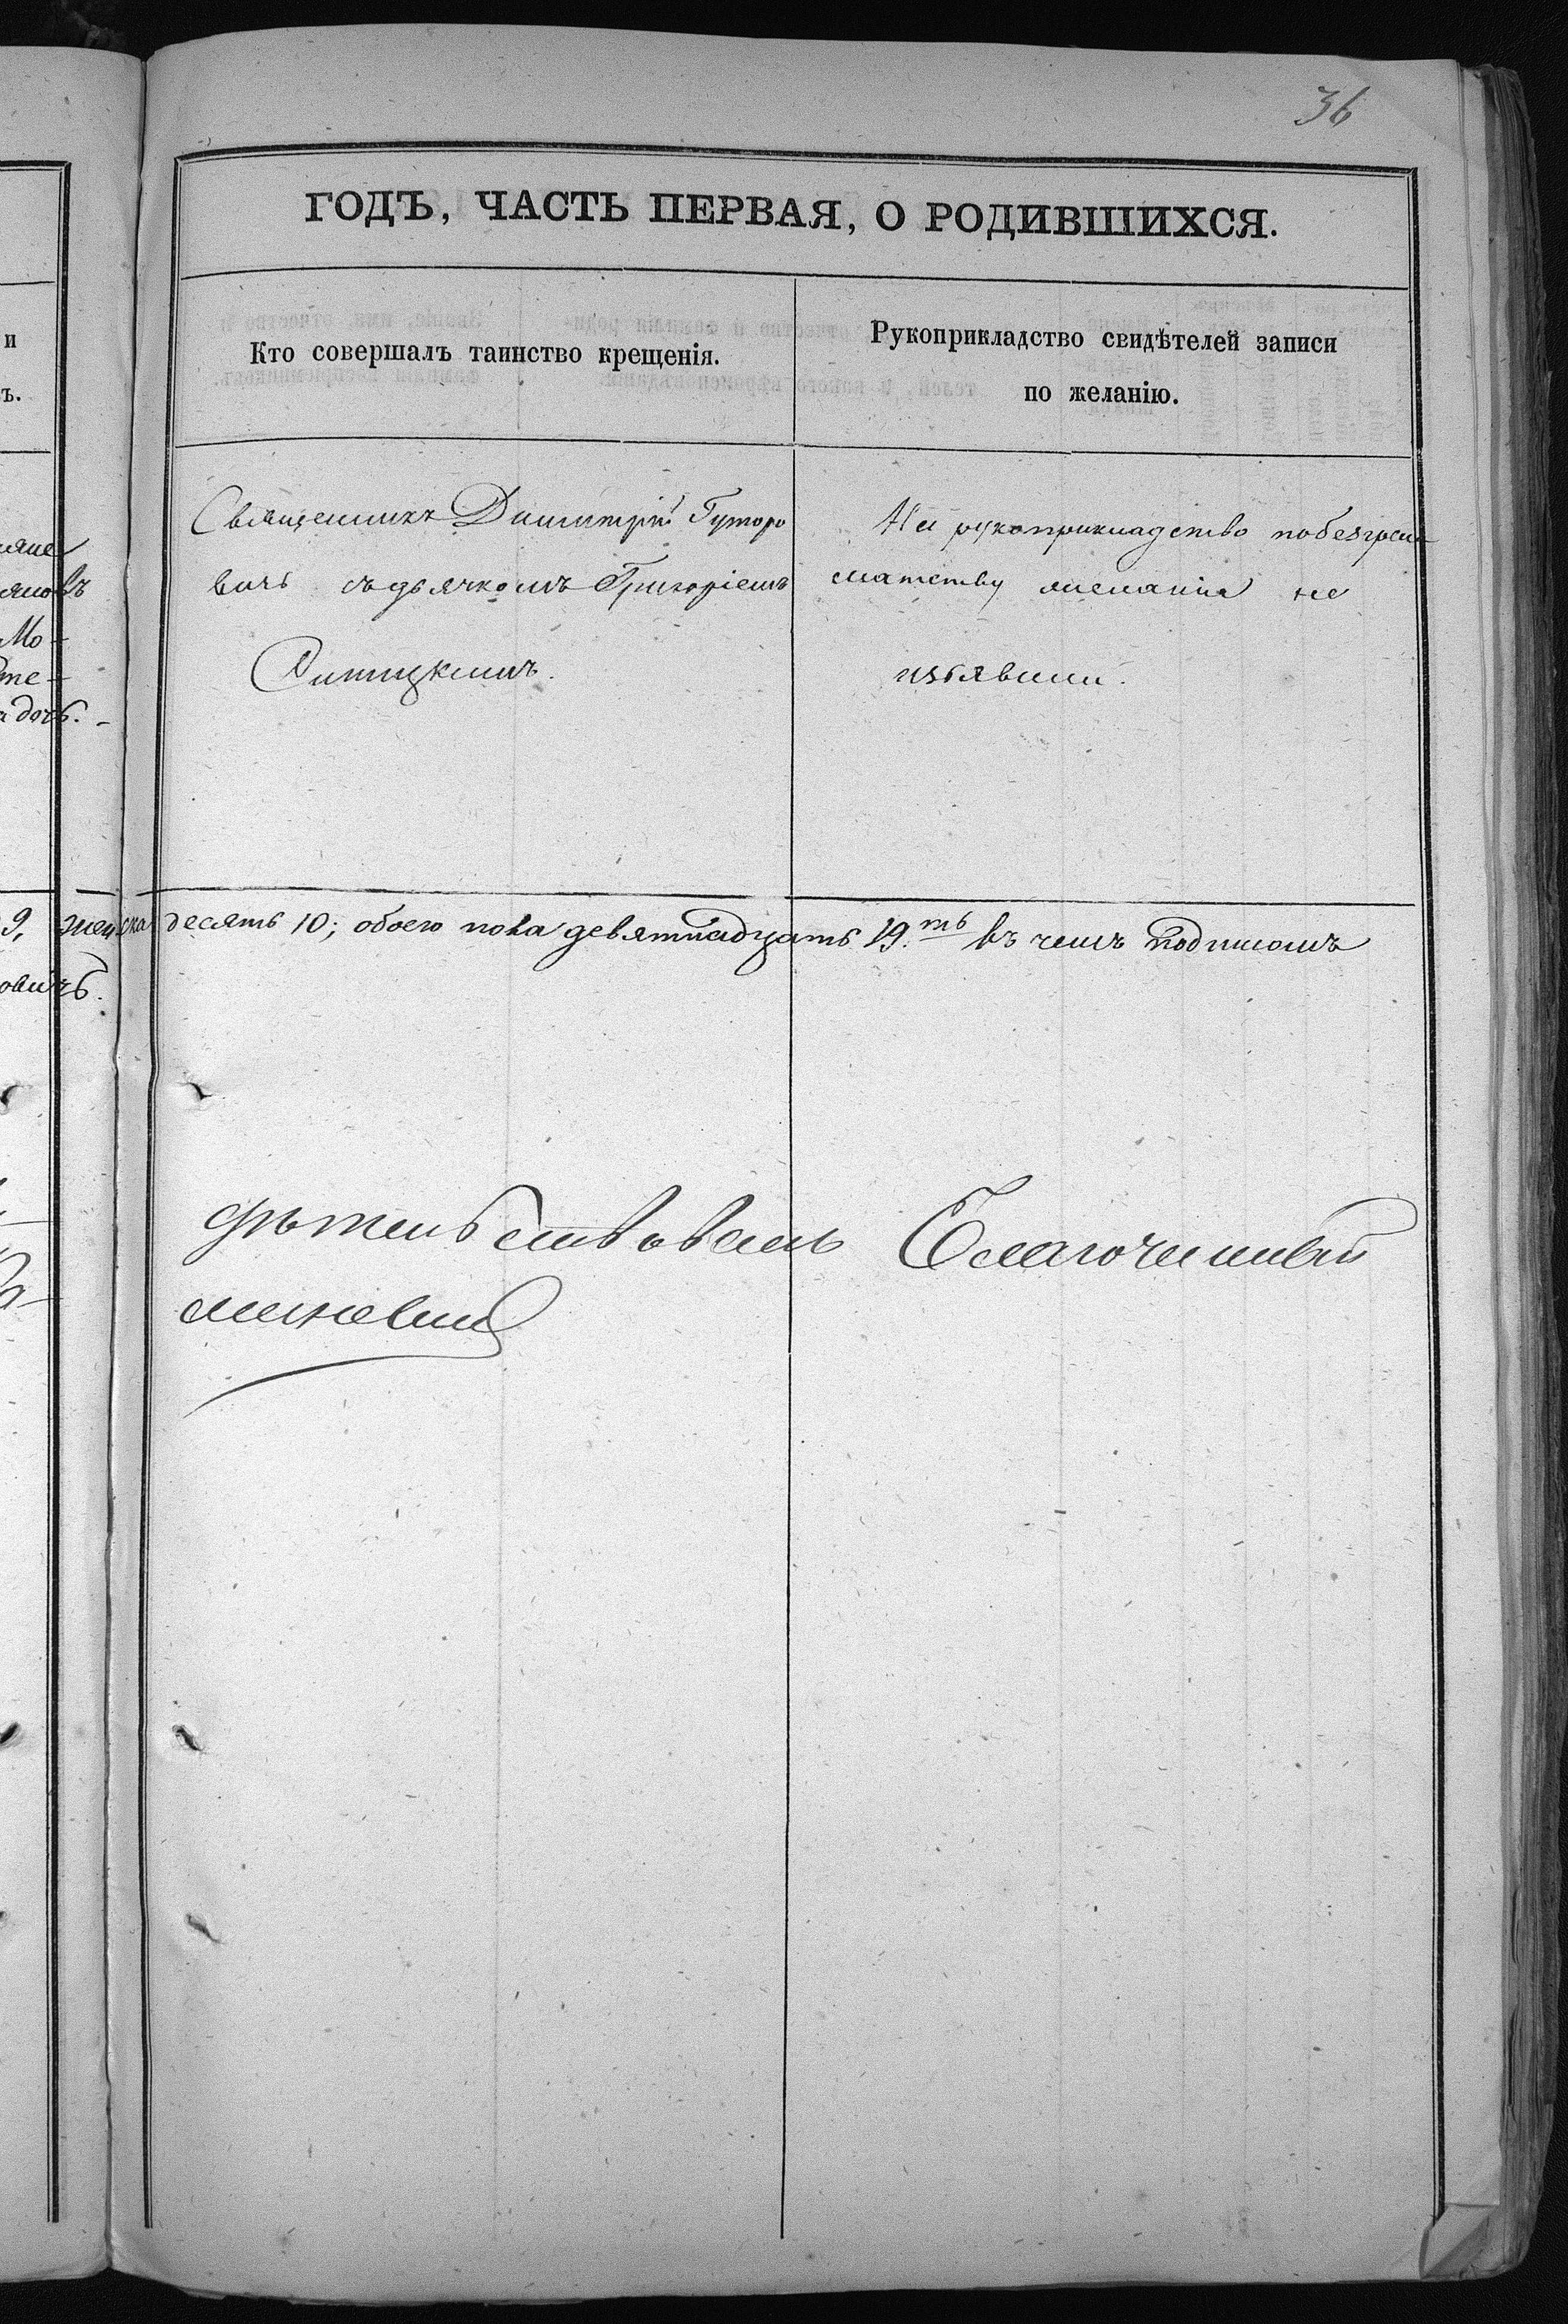 36
ГОДЪ, ЧАСТЬ ПЕРВАЯ, О РОДИВШИХСЯ.
и
ъ.
Кто совершалъ таинство крещенія.
Рукоприкладство свидѣтелей записи
по желанію.
Священникъ Димитрій Гуторо
вичъ съ дьячкомъ Григоріемъ
На рукоприкладство по безгра
матству желанія не
изъявили.
Мо-
дочь.
9, женска десять 10; обоего пола девятнадцать 19.ть въ чемъ подписомъ
овичъ.
Благочинный